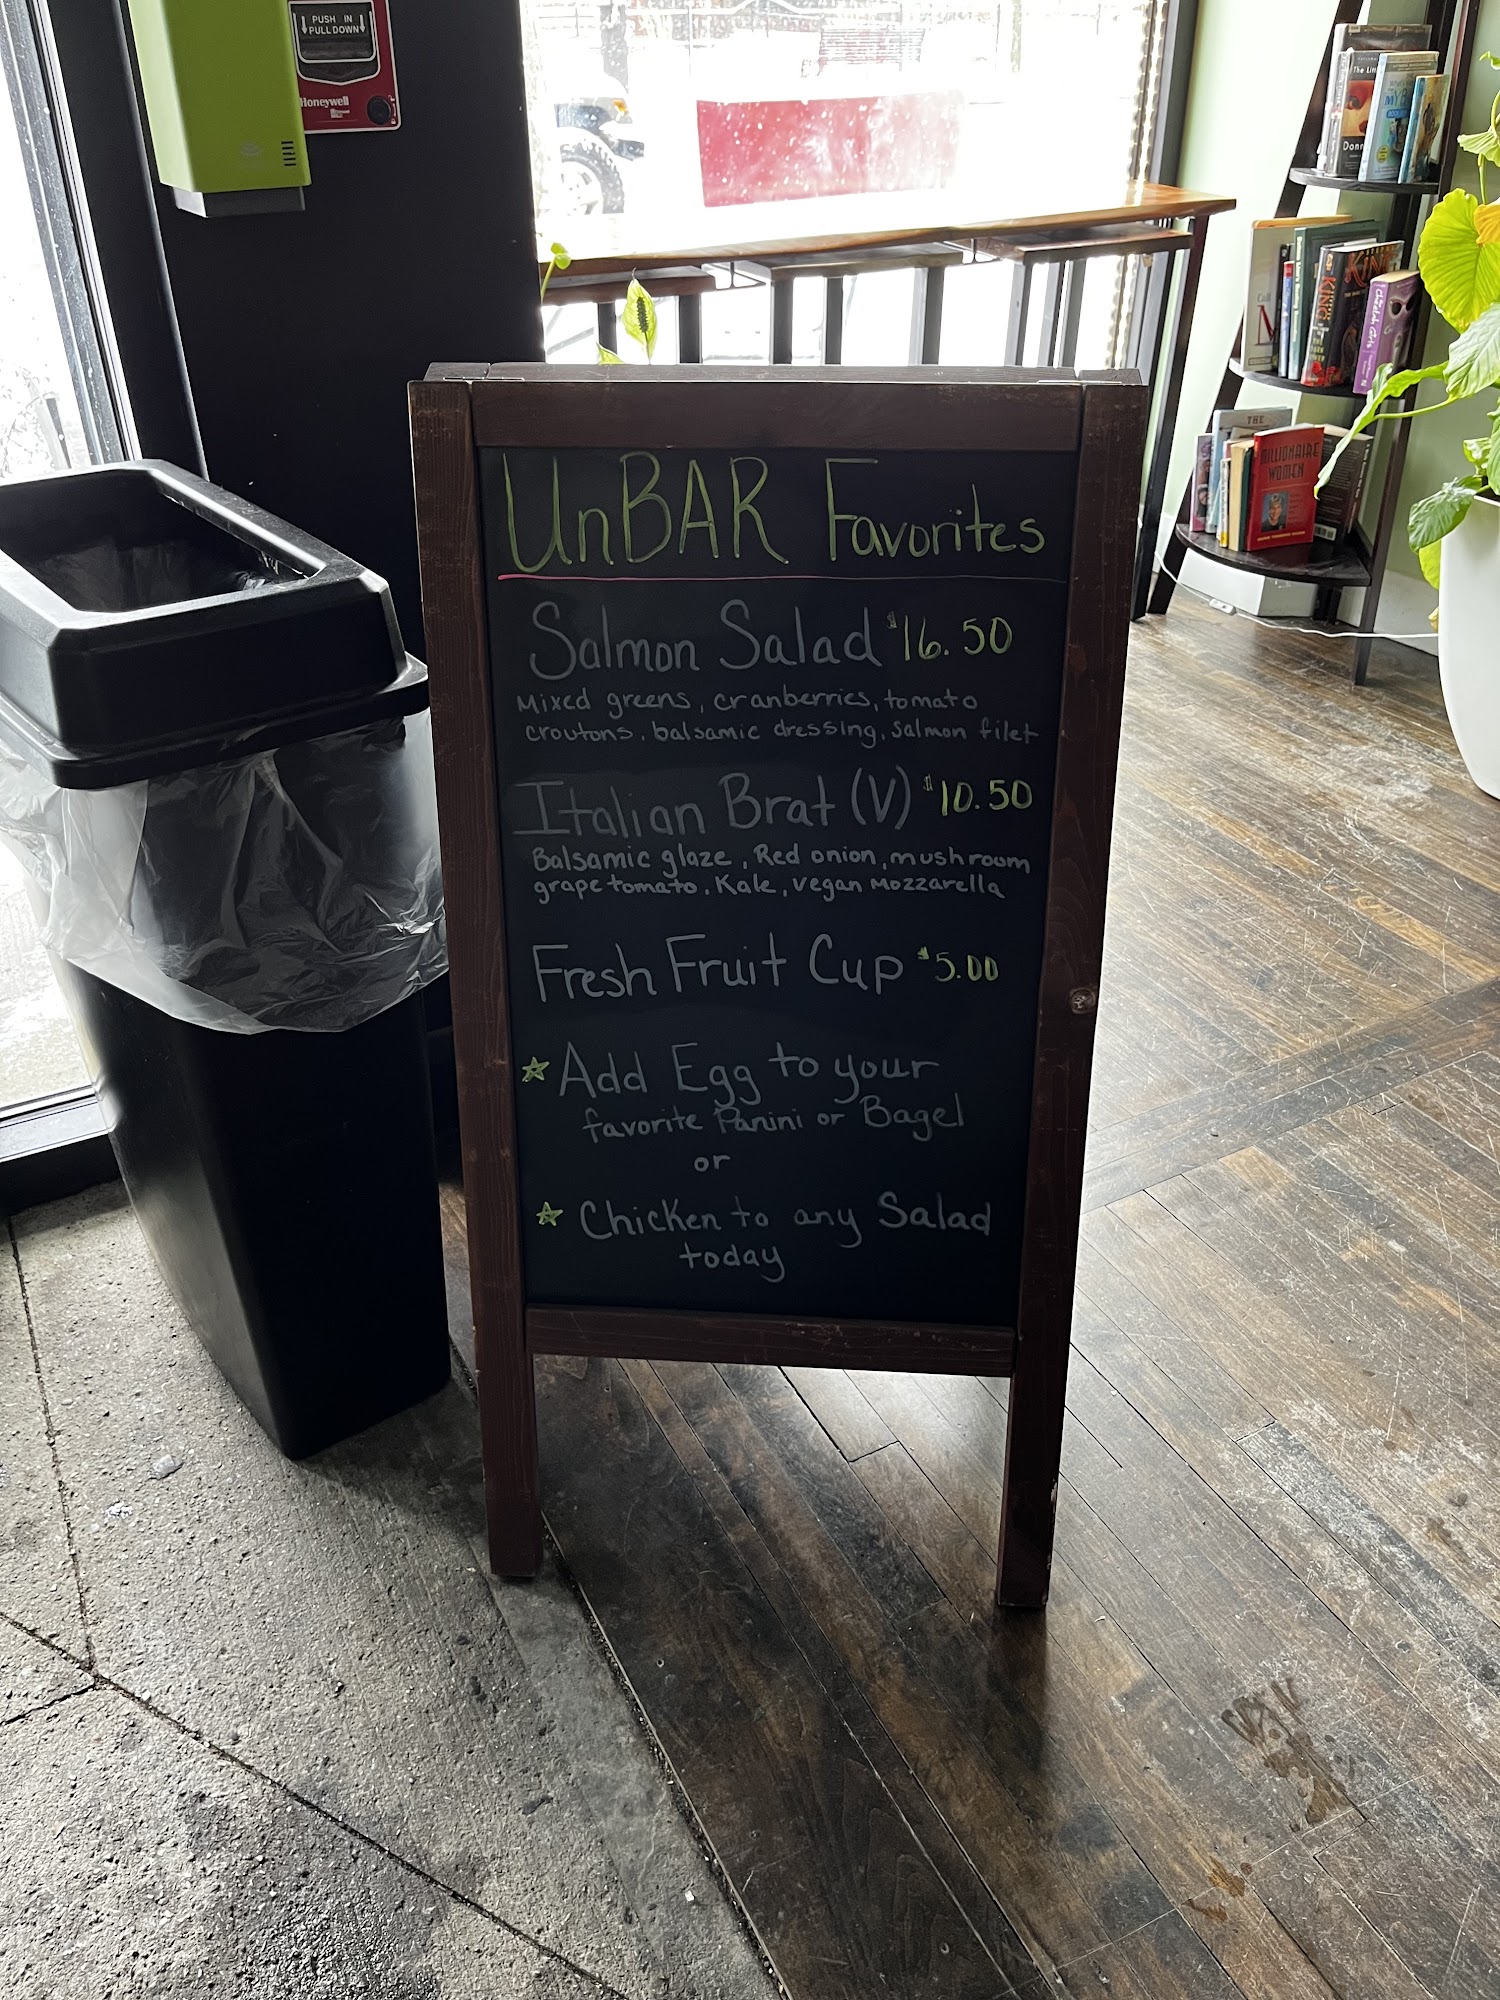 PUSH IN
PULL DOWN
Honeywell
The Lit
Donn
MY
KING
KING
THE
MILLIONAIRE
WOMEN
UnBAR Favorites
Salmon Salad $16.50
Mixed greens, cranberries, tomato
croutons, balsamic dressing, salmon filet
Italian Brat (V) $10.50
Balsamic glaze, Red onion, mushroom
grape tomato, Kale, vegan mozzarella
Fresh Fruit Cup $5.00
☆ Add Egg to your
favorite Panini or Bagel
or
☆ Chicken to any Salad
today